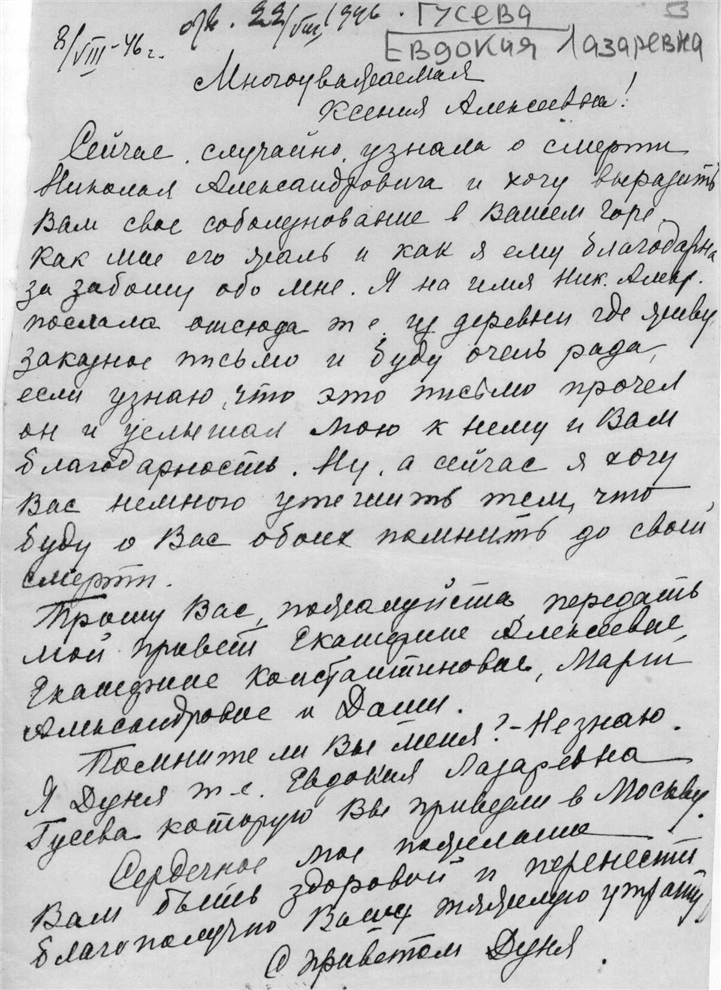 8/VIII-46 г. отв. 22/VIII, 1946. Гусева
Евдокия Лазаревна
Многоуважаемая
Ксения Алексеевна!
Сейчас, случайно, узнала о смерти
Николая Александровича и хочу выразить
Вам свое соболезнование в Вашем горе.
Как мне его жаль и как я ему благодарна
за заботу обо мне. Я на имя Ник. Алекс.
послала отсюда т.е. из деревни где живу
заказное письмо и буду очень рада,
если узнаю, что это письмо прочел
он и услышал мою к нему и Вам
благодарность. Ну, а сейчас я хочу
Вас немного утешить тем, что
буду о Вас обоих помнить до своей
смерти.
Прошу Вас, пожалуйста, передать
мой привет Екатерине Алексеевне,
Екатерине Константиновне, Марии
Александровне и Даши.
Помните ли Вы меня? - Не знаю.
Я Дуня т.е. Евдокия Лазаревна
Гусева которую Вы привели в Москву.
Сердечное мое пожелание
Вам быть здоровой и перенести
благополучно Вашу тяжелую утрату
С приветом Дуня.